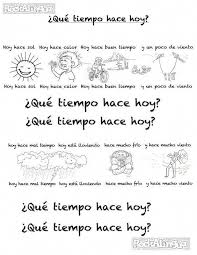 RockALingua
¿Qué tiempo hace hoy?
Hoy hace sol   Hoy hace calor   Hoy hace buen tiempo   y un poco de viento
Hoy hace sol   Hoy hace calor   Hoy hace buen tiempo   y un poco de viento
¿Qué tiempo hace hoy?
¿Qué tiempo hace hoy?
hoy hace mal tiempo   hoy está lloviendo   hoy hace mucho frío   y hace mucho viento
hoy hace mal tiempo   hoy está lloviendo   hoy hace mucho frío   y hace mucho viento
¿Qué tiempo hace hoy?
¿Qué tiempo hace hoy?
RockALingua